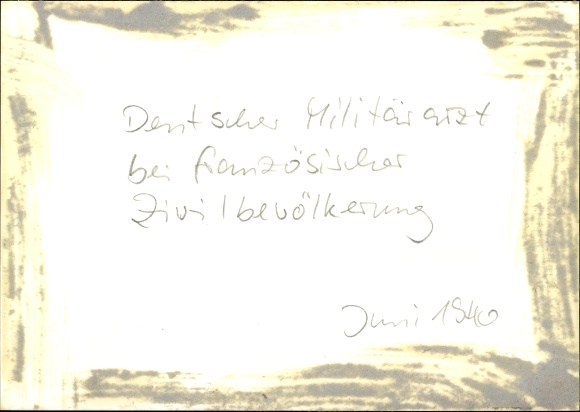 Deutscher Militärarzt
bei französischer
Zivilbevölkerung
Juni 1940